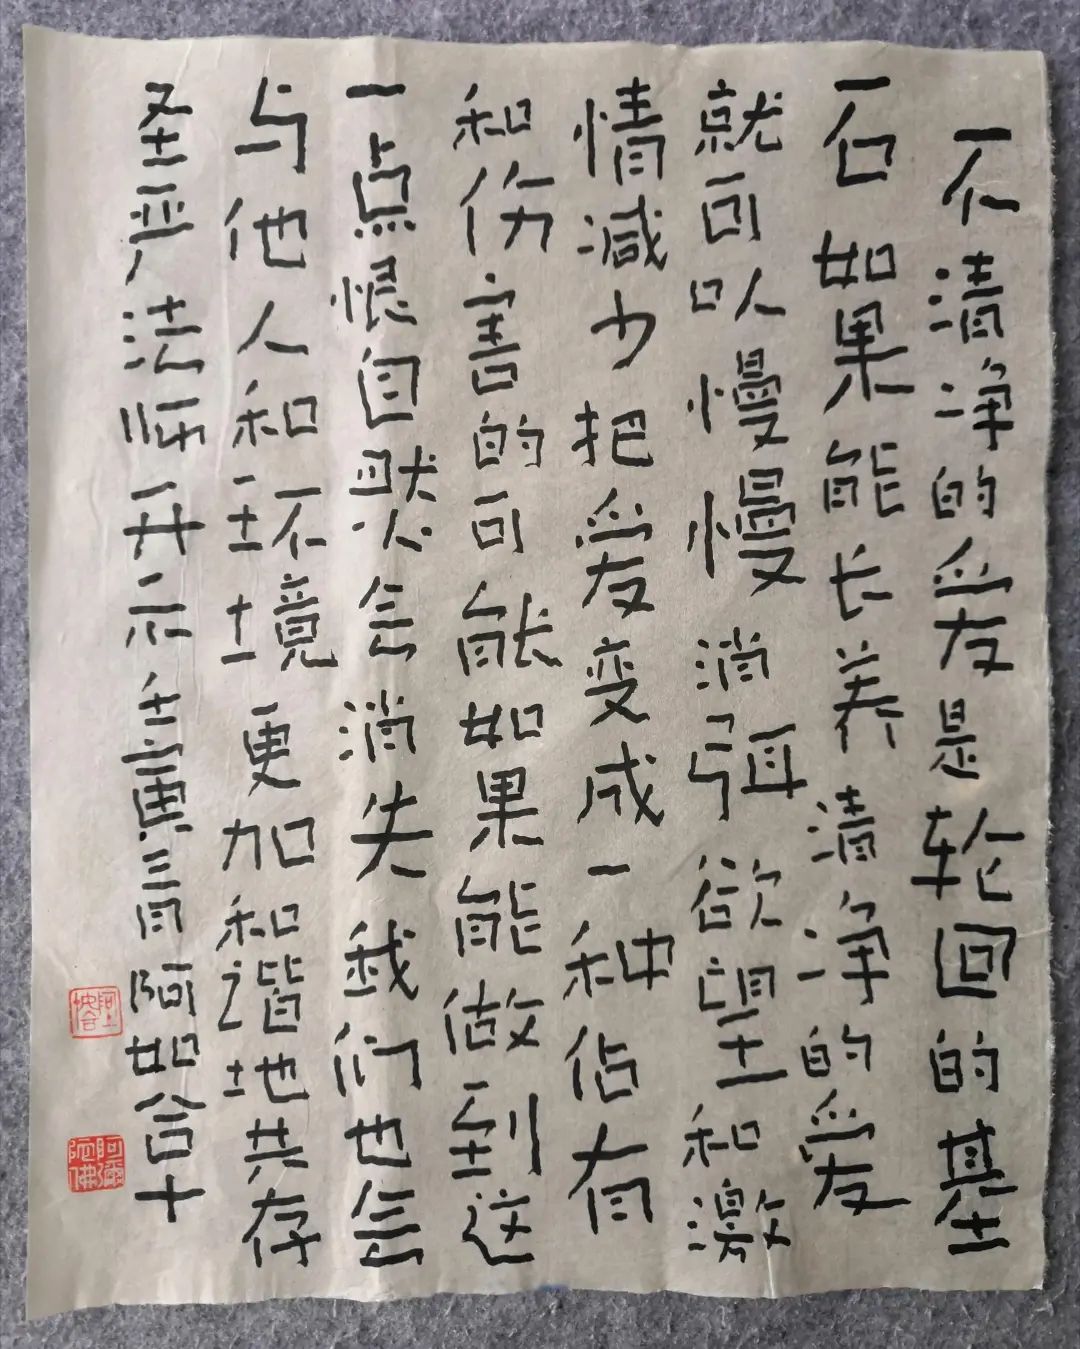 不清净的爱是轮回的基
石如果能长养清净的爱
就可以慢慢消弭欲望和激
情减少把爱变成一种佔有
和伤害的可能如果能做到这
一点恨自然会消失我们也会
与他人和环境更加和谐地共存
圣严法师开示壬寅三月阿如合十
阿彌陀佛